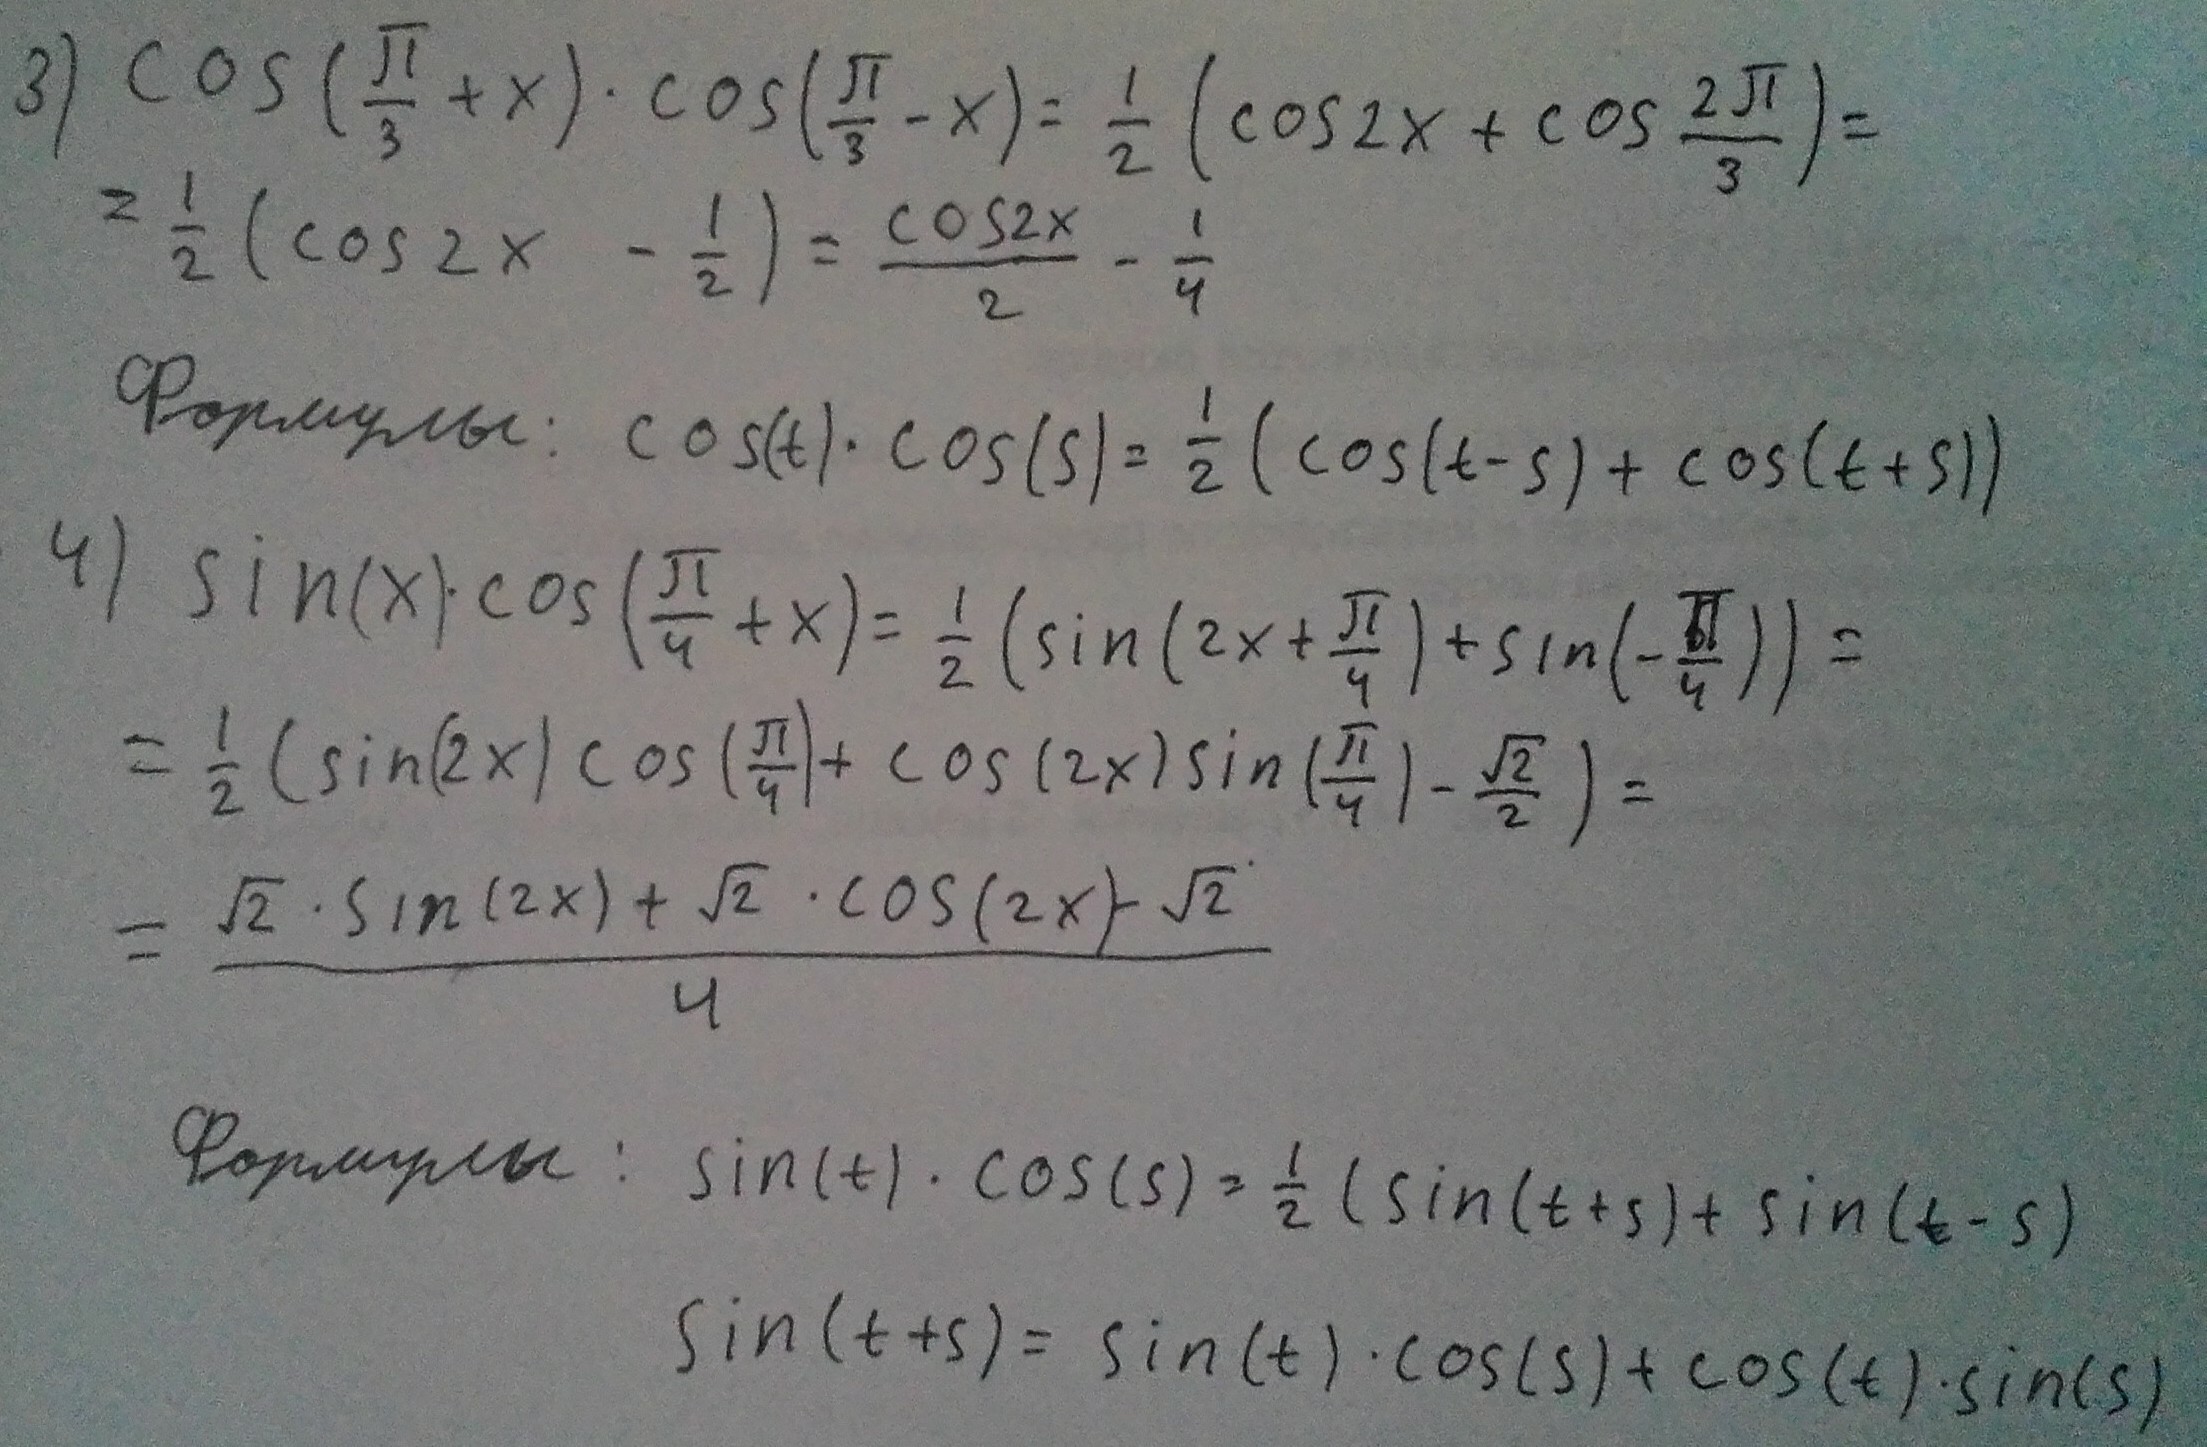 3) cos(π/3 + x) · cos(π/3 - x) = 1/2 (cos2x + cos 2π/3) =
= 1/2 (cos2x - 1/2) = cos2x/2 - 1/4
Формулы: cos(t) · cos(s) = 1/2 (cos(t-s) + cos(t+s))
4) sin(x) · cos(π/4 + x) = 1/2 (sin(2x + π/4) + sin(-π/4)) =
= 1/2 (sin(2x) cos(π/4) + cos(2x) sin(π/4) - √2/2) =
= √2 · sin(2x) + √2 · cos(2x) - √2 / 4
Формулы: sin(t) · cos(s) = 1/2 (sin(t+s) + sin(t-s)
sin(t+s) = sin(t) · cos(s) + cos(t) · sin(s)